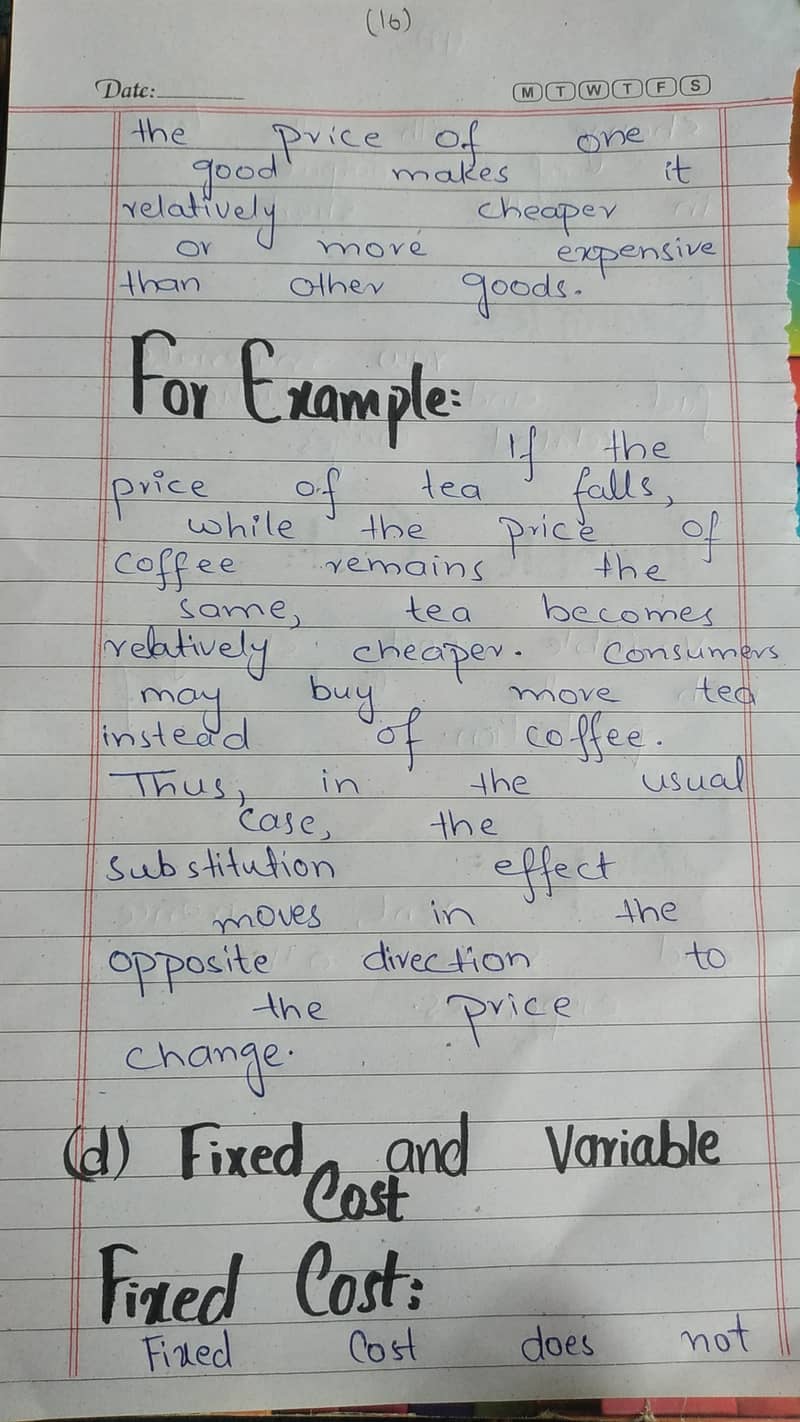 (16)
Date:
M T W T F S
the price of one
good makes it
relatively cheaper
or more expensive
than other goods.
For Example:
If the
price of tea falls,
while the price of
coffee remains the
same, tea becomes
relatively cheaper. Consumers
may buy more tea
instead of coffee.
Thus, in the usual
case, the
substitution effect
moves in the
opposite direction to
the price
change.
(d) Fixed and Variable
Cost
Fixed Cost:
Fixed Cost does not